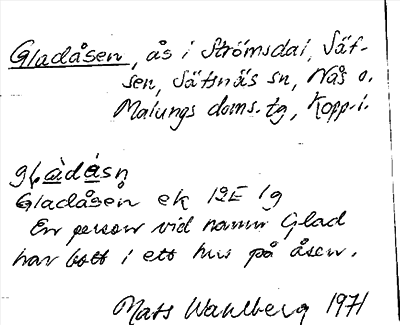 Gladåsen, ås i Strömsdal, Säf-
sen, Säfsnäs sn, Nås o.
Malungs doms. tg, Kopp. l.
Gladåsen ek 12E 1g
En person vid namn Glad
har bott i ett hus på åsen.
Mats Wahlberg 1971